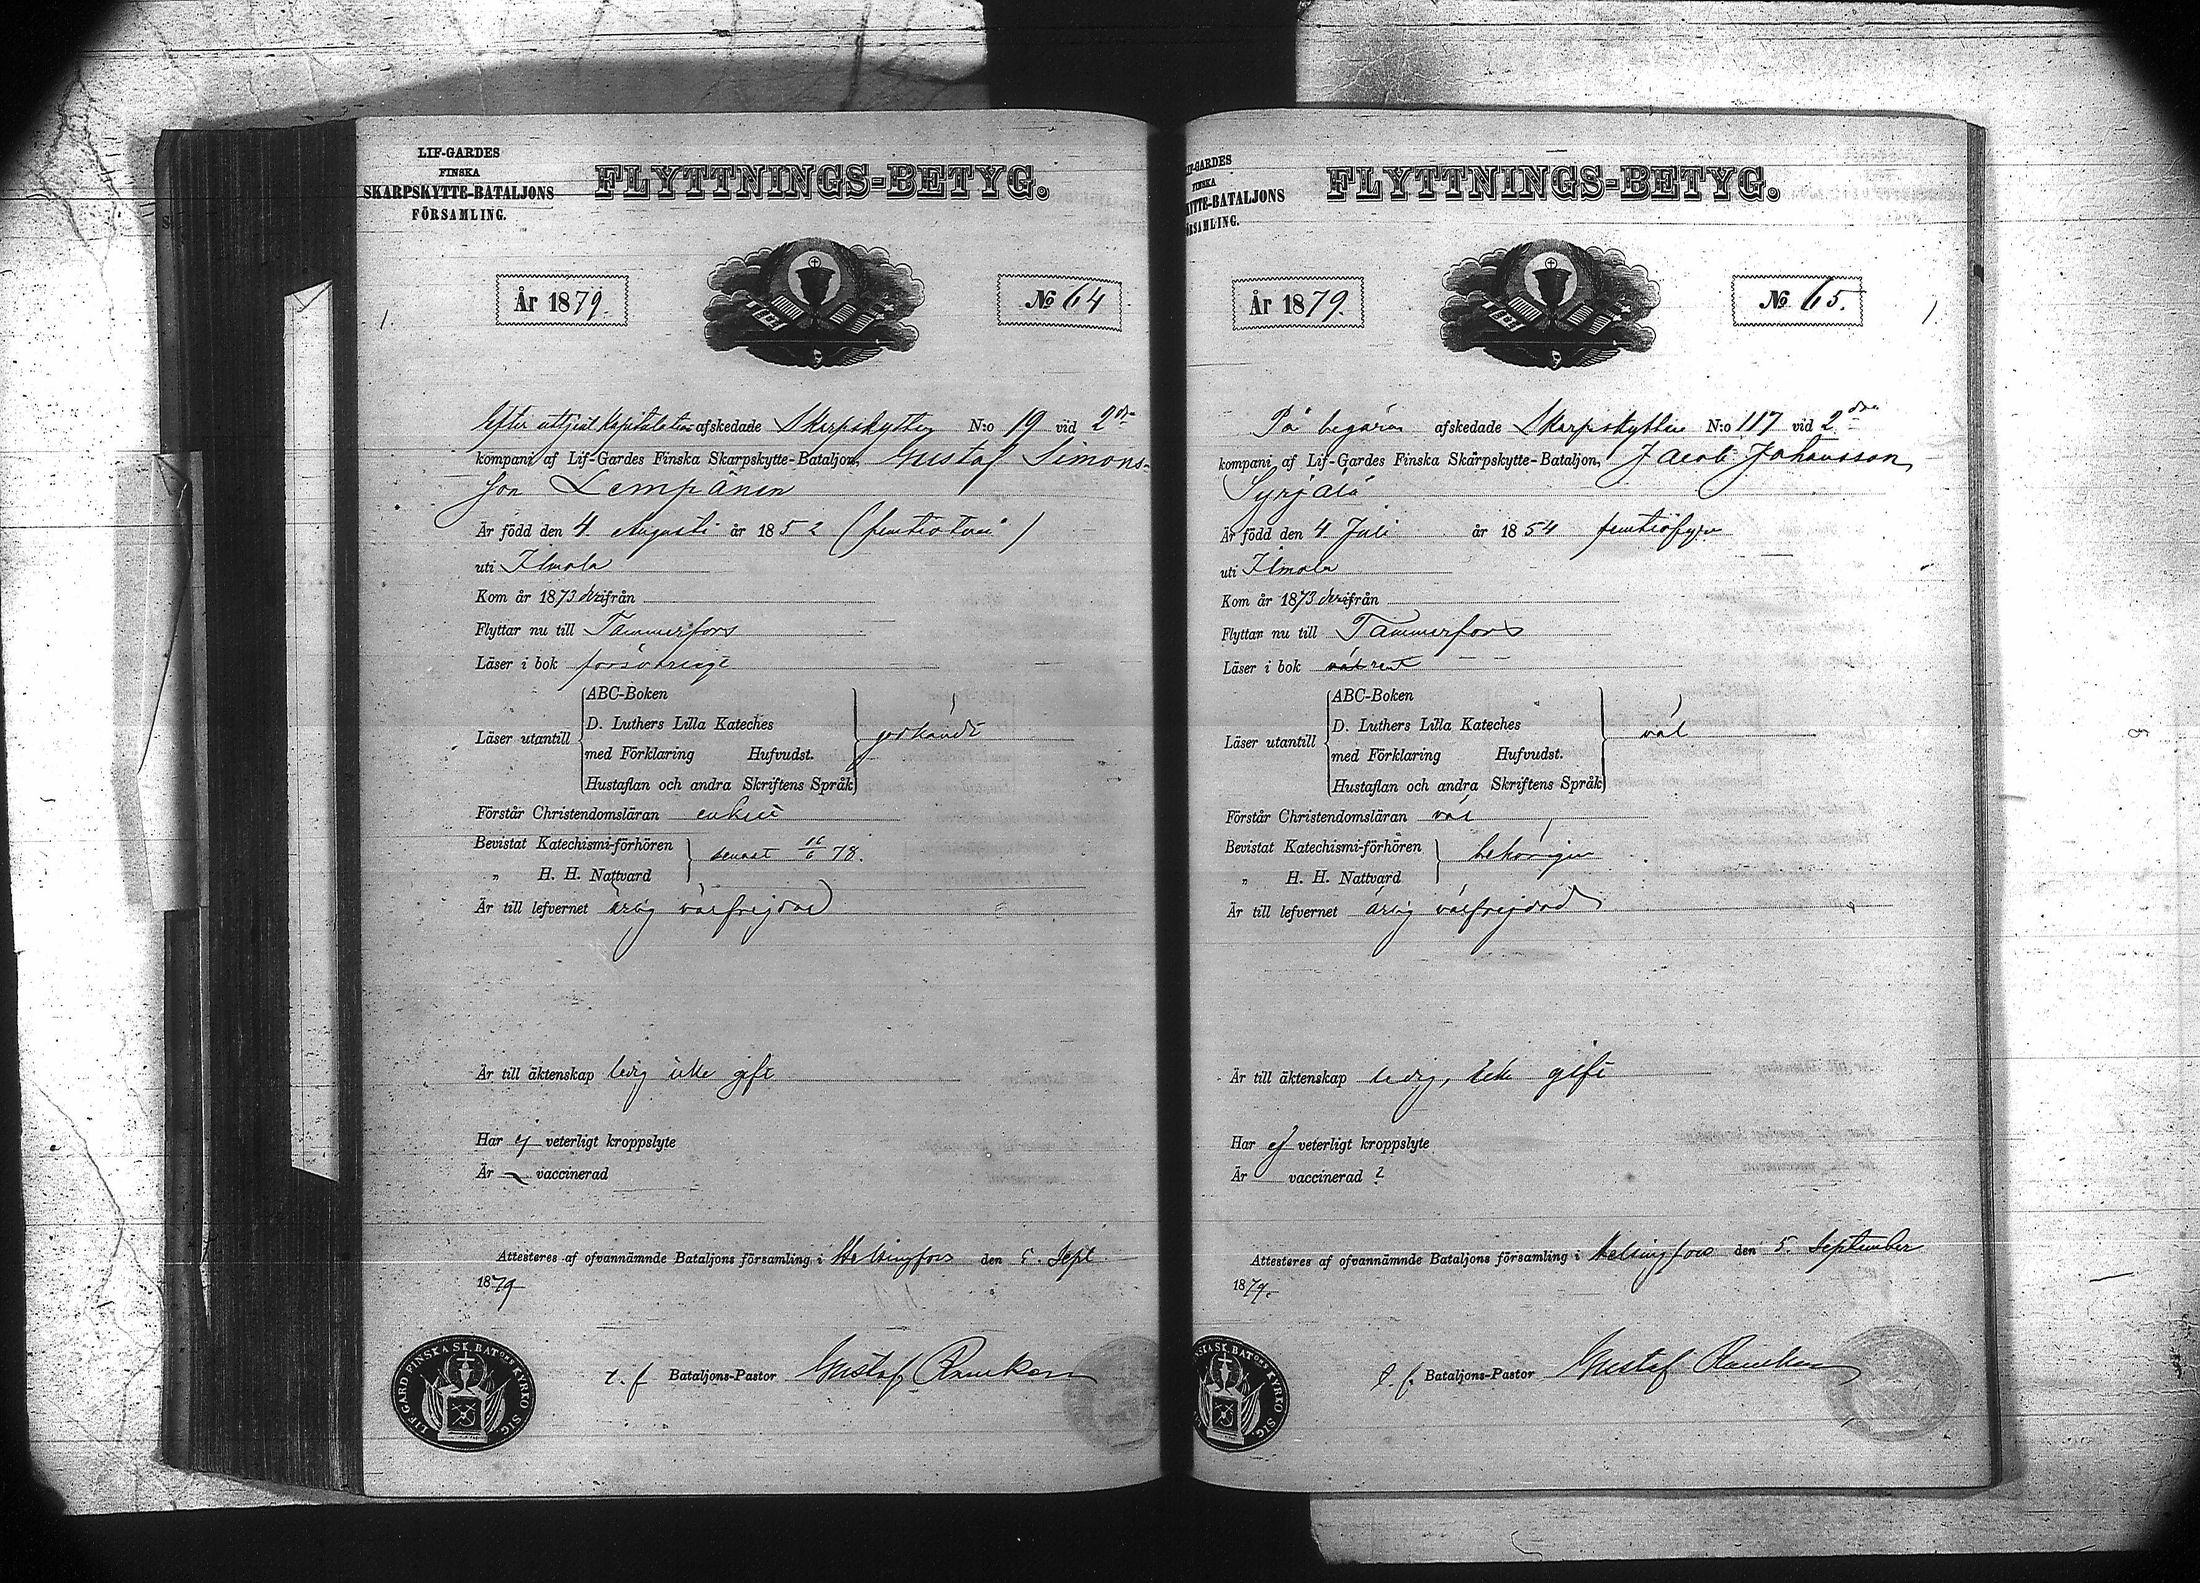 LIF-GARDES
FINSKA
SKARPSKYTTE-BATALJONS
FÖRSAMLING.
FLYTTNINGS-BETYG.
År 1879.
№ 64
Efter uttjent Kapitulation afskedade Skarpskytten N:o 19 vid 2dra
kompani af Lif-Gardes Finska Skarpskytte-Bataljon, Gustaf Simons-
son Lempänen
Är född den 4 Augusti år 1852 (femtiotvå)
uti Ilmola
Kom år 1873 ifrån
Flyttar nu till Tammerfors
Läser i bok försvarligt
Läser utantill
ABC-Boken
D. Luthers Lilla Kateches
med Förklaring Hufvudst.
Hustaflan och andra Skriftens Språk
godkändt
Förstår Christendomsläran enkelt
Bevistat Katechismi-förhören
„ H. H. Nattvard
senast 16/6 78.
Är till lefvernet ärlig välfrejdad
Är till äktenskap ledig icke gift
Har ej veterligt kroppslyte
Är vaccinerad
Attesteres af ofvannämnde Bataljons församling i Helsingfors den 5. Sept
1879
t. f. Bataljons-Pastor Gustaf
LIF-GARD FINSKA SK. BATONS KYRKO SIG.
LIF-GARDES
FINSKA
KYTTE-BATALJONS
FÖRSAMLING.
FLYTTNINGS-BETYG.
År 1879.
№ 65.
På begäran afskedade Skarpskytten N:o 117 vid 2dra
kompani af Lif-Gardes Finska Skarpskytte-Bataljon, Jacob Johansson
Syrjälä
Är född den 4 Juli år 1854 femtiofyra
uti Ilmola
Kom år 1873 ifrån
Flyttar nu till Tammerfors
Läser i bok rent
Läser utantill
ABC-Boken
D. Luthers Lilla Kateches
med Förklaring Hufvudst.
Hustaflan och andra Skriftens Språk
väl
Förstår Christendomsläran väl
Bevistat Katechismi-förhören
„ H. H. Nattvard
behörigen
Är till lefvernet ärlig välfrejdad
Är till äktenskap ledig, icke gift
Har ej veterligt kroppslyte
Är vaccinerad ?
Attesteres af ofvannämnde Bataljons församling i Helsingfors den 5. September
1879.
t. f. Bataljons-Pastor Gustaf
SKA SK. BATONS KYRKO SIG.